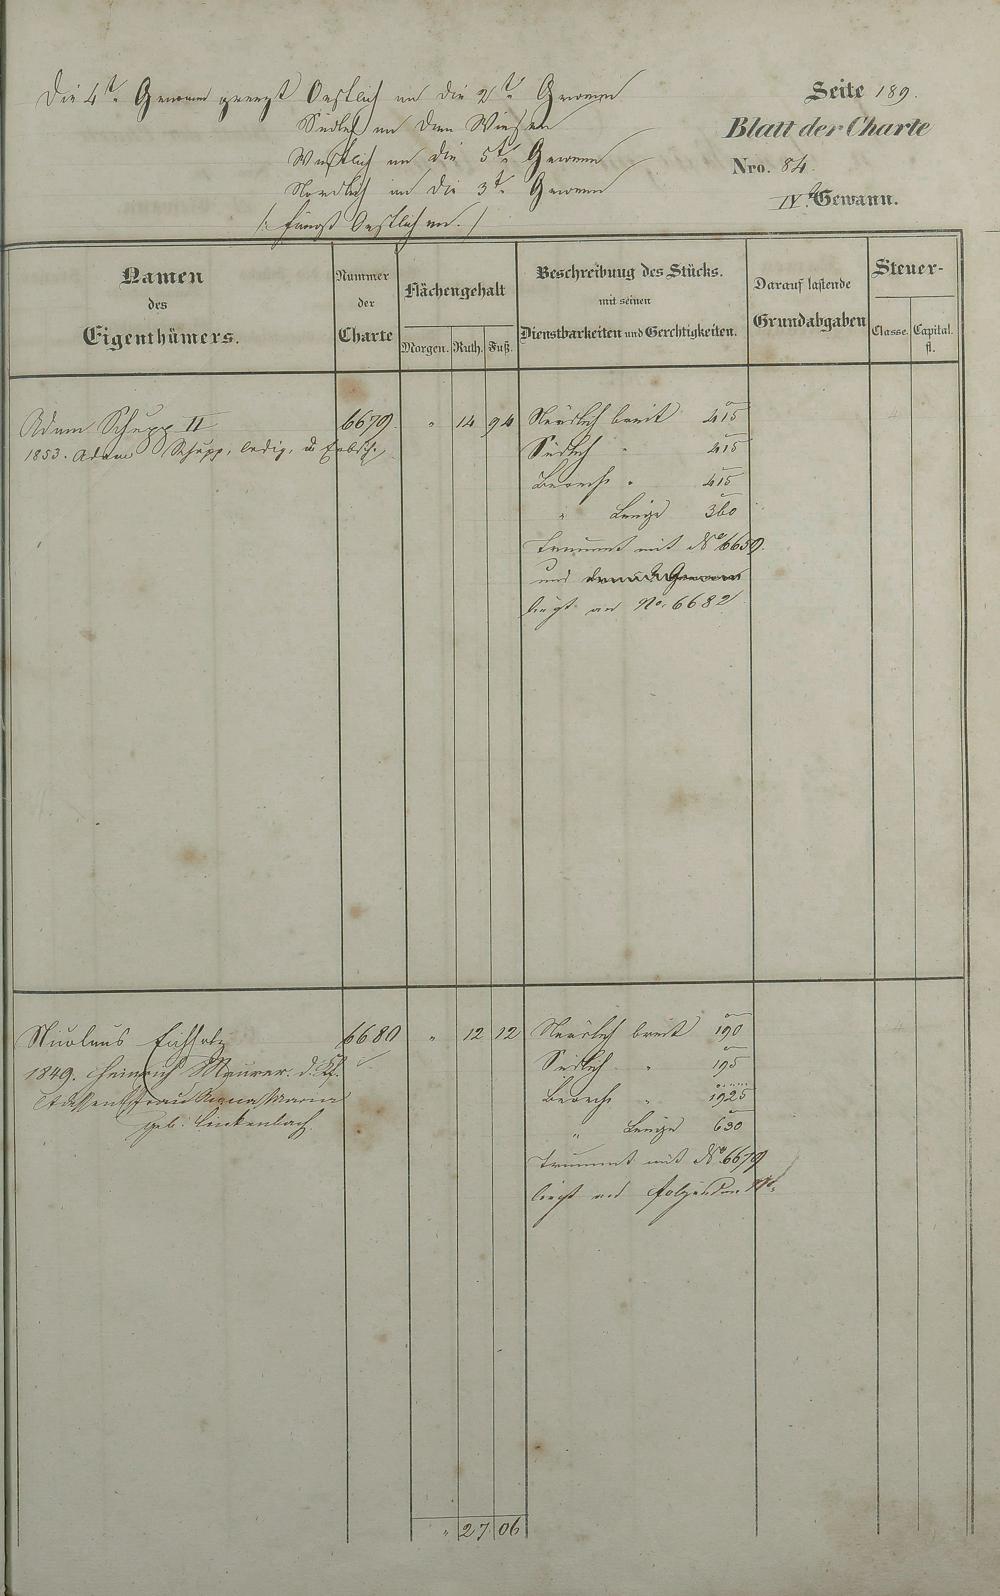 Die 4te Gewann grenzt Oestlich an die 2te Gewann
Südlich an den Wiesen
Westlich an die 5te Gewann
Nordlich an die 3te Gewann
/: fängt Oestlich an. /
Seite 189.
Blatt der Charte
Nro. 84.
IVte Gewann.
Namen
des
Eigenthümers.
Nummer
der
Charte
Flächengehalt
Morgen. Ruth. Fuß.
Beschreibung des Stücks.
mit seinen
Dienstbarkeiten und Gerchtigkeiten.
Darauf lastende
Grundabgaben
Steuer-
Classe. Capital.
fl.
Adam Schupp II 6679. " 14 94 Nördlich breit 415
1853. Adam Schupp, ledig, Südlich " 415
" 415
" Länge 360
mit No 6659.
und
liegt an No. 6682
Nicolaus Eichholz 6680 " 12 12 Nördlich breit 190
1849. Heinrich Maurer. Südlich " 195
dessen Frau Anna Maria " 1925
geb. Linkenbach. " Länge 630
mit No 6679
liegt an folgenden No.
" 27 06